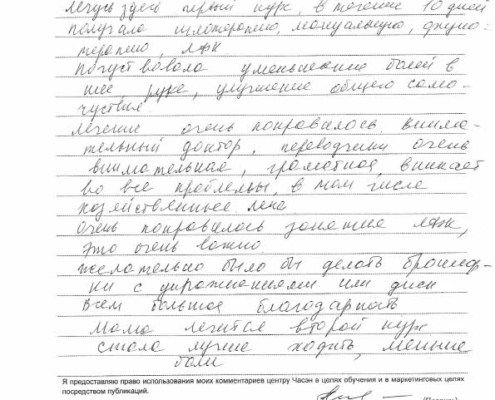 лечусь здесь первый курс, в течение 10 дней
получала иглотерапию, мануальную, физио-
терапию, ЛФК.
почуствовала уменьшение болей в
шее, руке, улучшение общего само-
чуствия.
лечение очень понравилось. внима-
тельный доктор, переводчики очень
внимательная, грамотная, вникает
во все проблемы, в том числе
хозяйственные
очень понравилось занятие ЛФК,
это очень важно
желательно было бы делать брошюр-
ки с упражнениями или диски
Всем большая благодарность
Мама лечится второй курс
стала лучше ходить, меньше
боли
Я предоставляю право использования моих комментариев центру Часэн в целях обучения и в маркетинговых целях
посредством публикаций.
(Подпись)